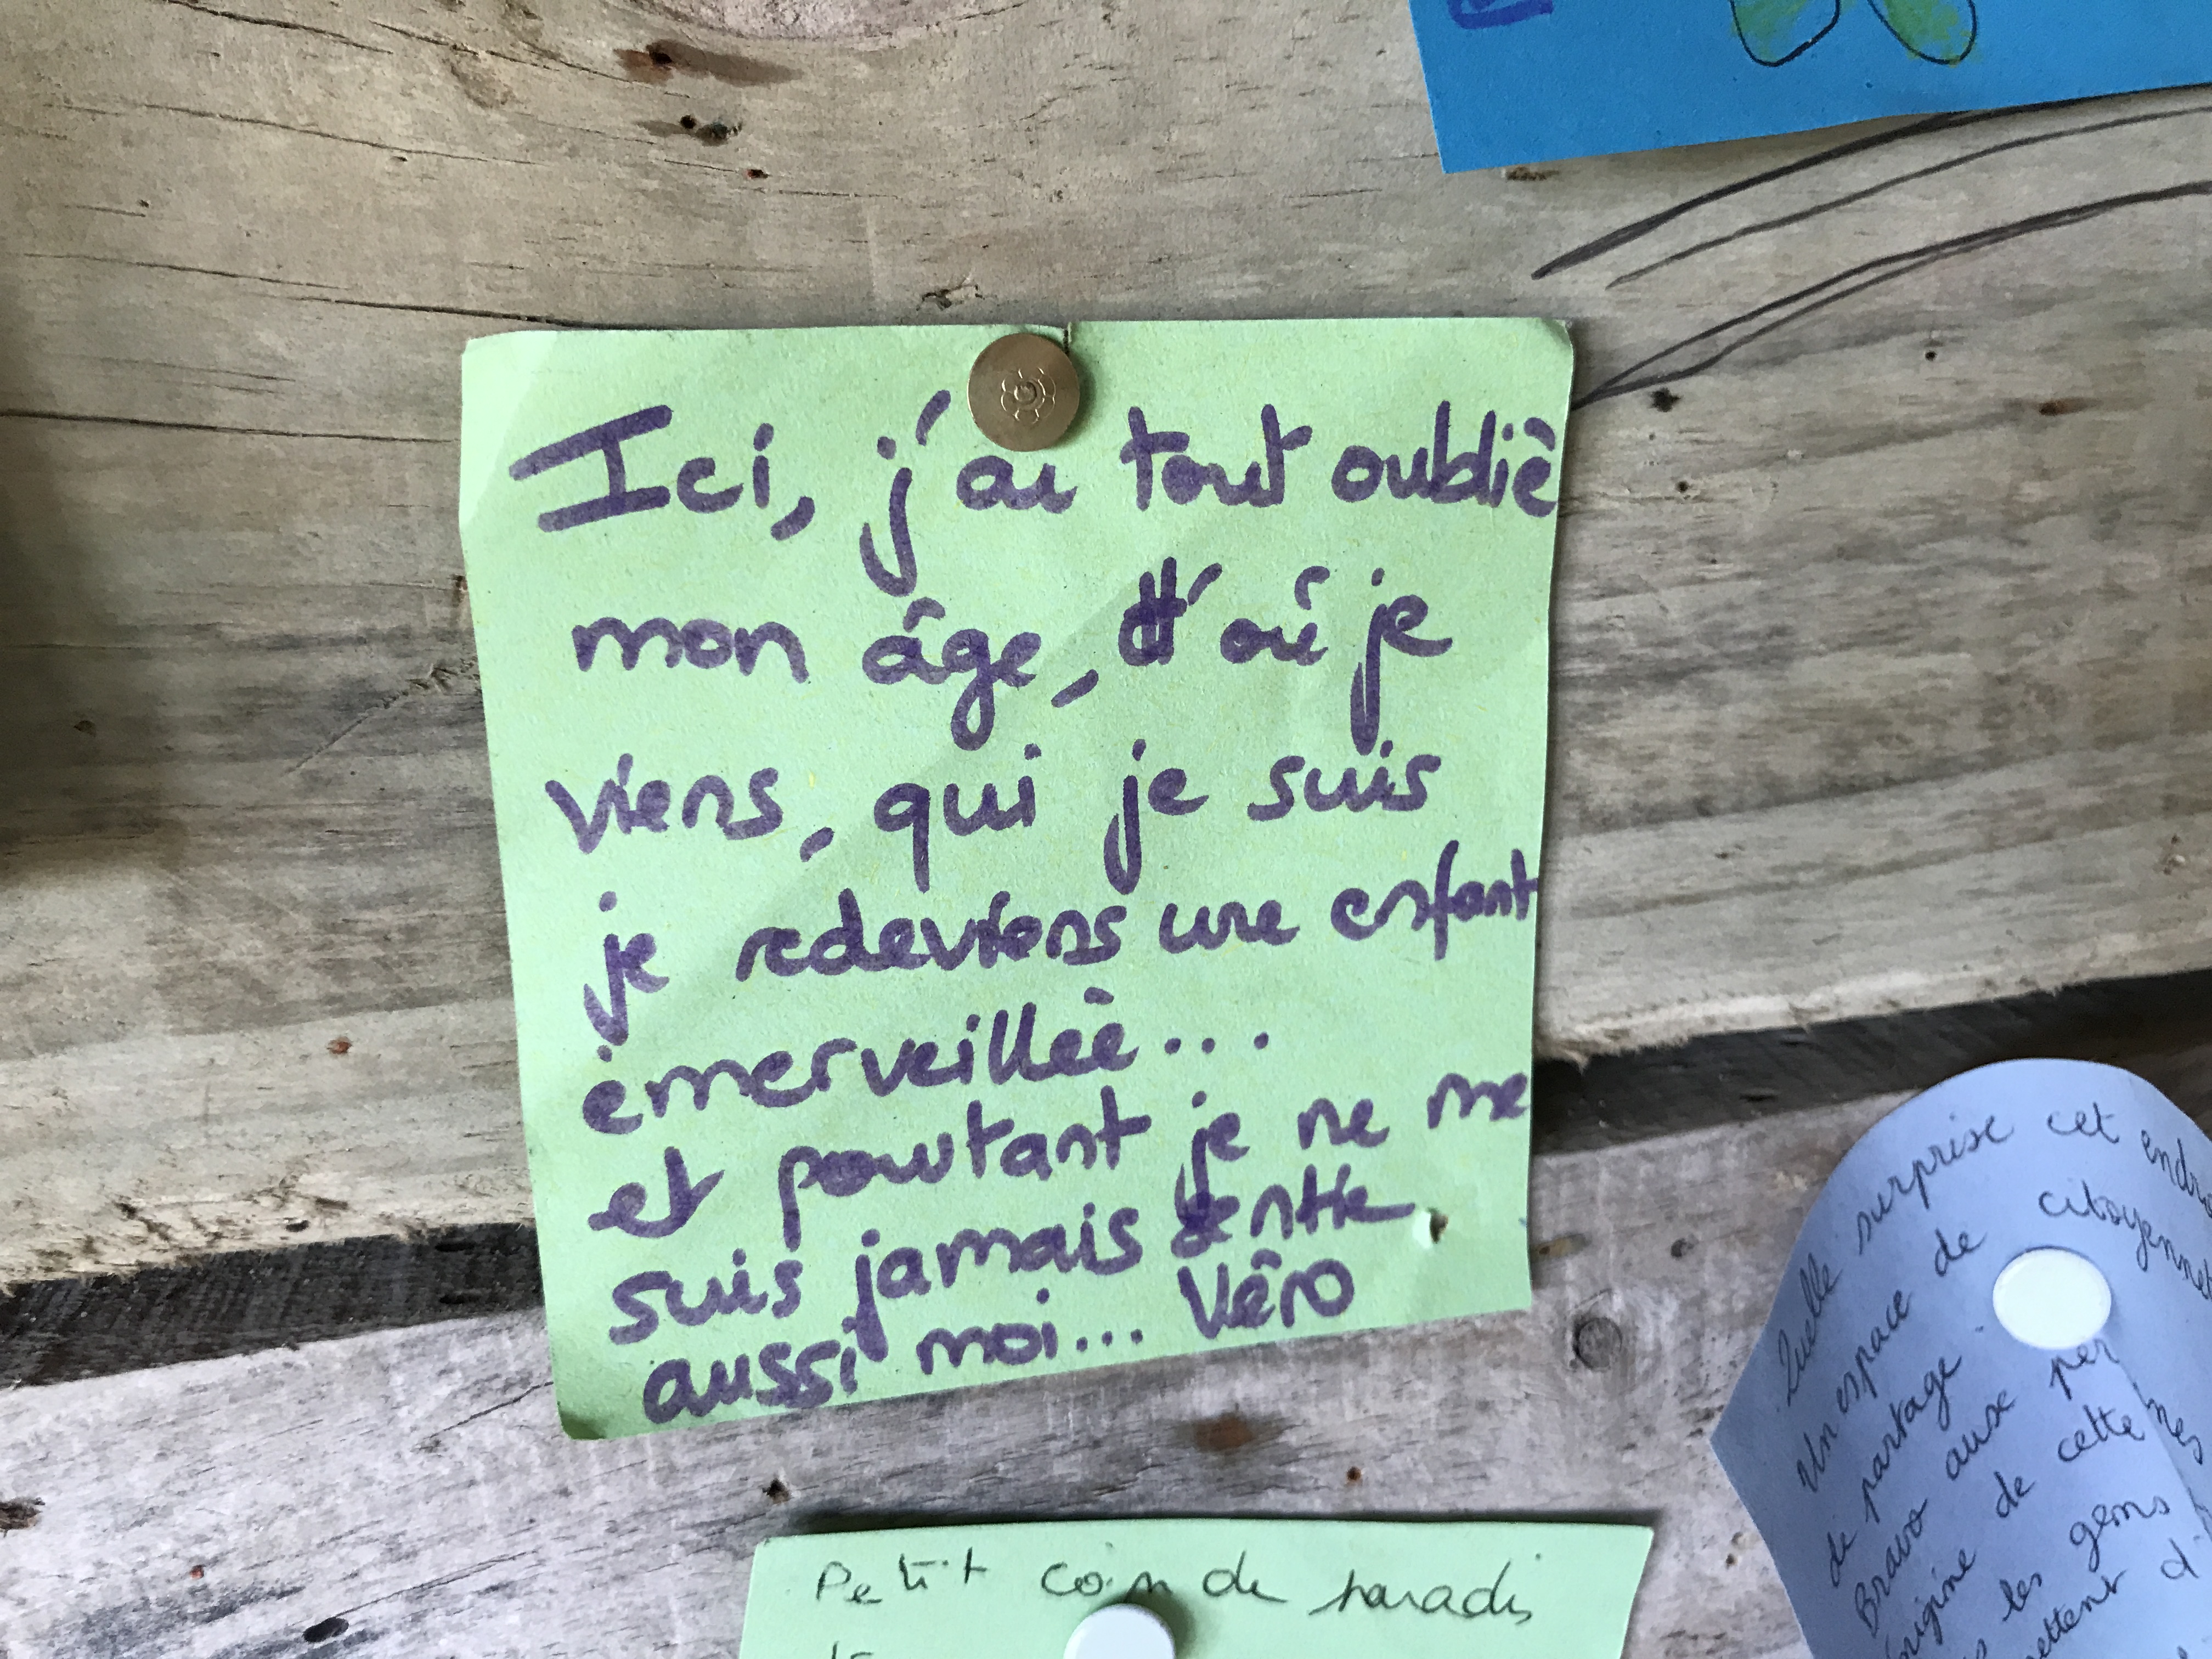 Ici, j'ai tout oublié
mon âge, d'où je
viens, qui je suis
je redeviens une enfant
émerveillée...
et pourtant je ne me
suis jamais sentie
aussi moi... Véro
Petit coin de paradis
Quelle surprise cet
Un espace de citoyennet
de partage.
Bravo aux per nes
origine de cette
les gens
mettent d'